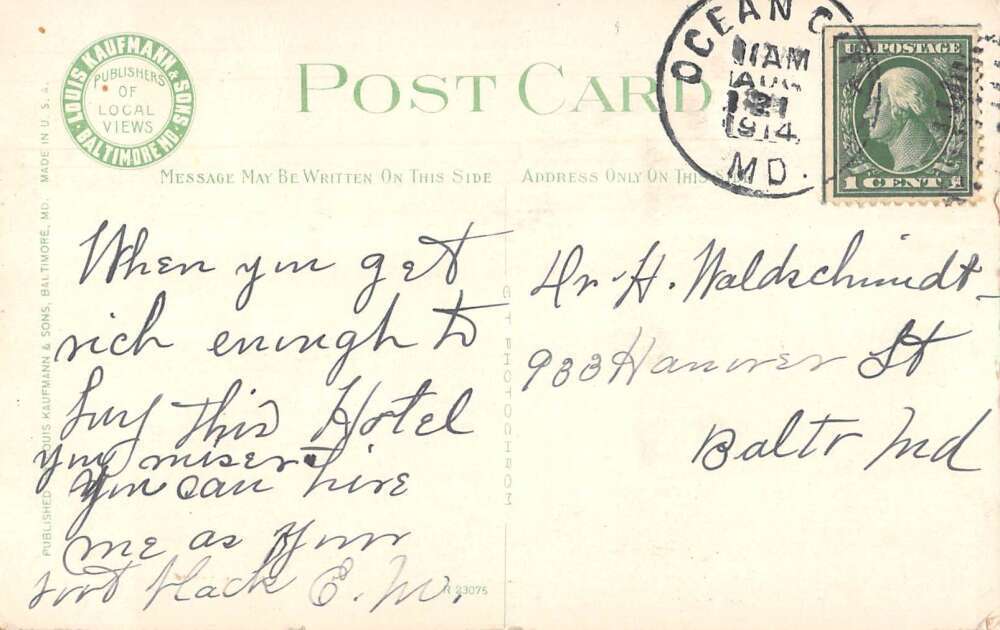 LOUIS KAUFMANN & SONS
BALTIMORE MD.
PUBLISHERS
OF
LOCAL
VIEWS
POST CARD
OCEAN C
11 AM
AUG
21
1914
MD.
U.S. POSTAGE
1 CENT 1
MESSAGE MAY BE WRITTEN ON THIS SIDE
ADDRESS ONLY ON THIS
PUBLISHED LOUIS KAUFMANN & SONS, BALTIMORE, MD. MADE IN U.S.A.
When you get
rich enough to
buy this Hotel
you
you can hire
me as your
boot black E. W.
R 23075
CT PHOTOCHROM
Dr. H. Waldschmidt
933 Hanover St
Balto Md